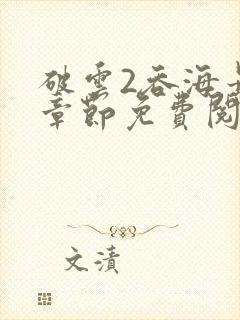 破雲2吞海
章節免費閱
文漬